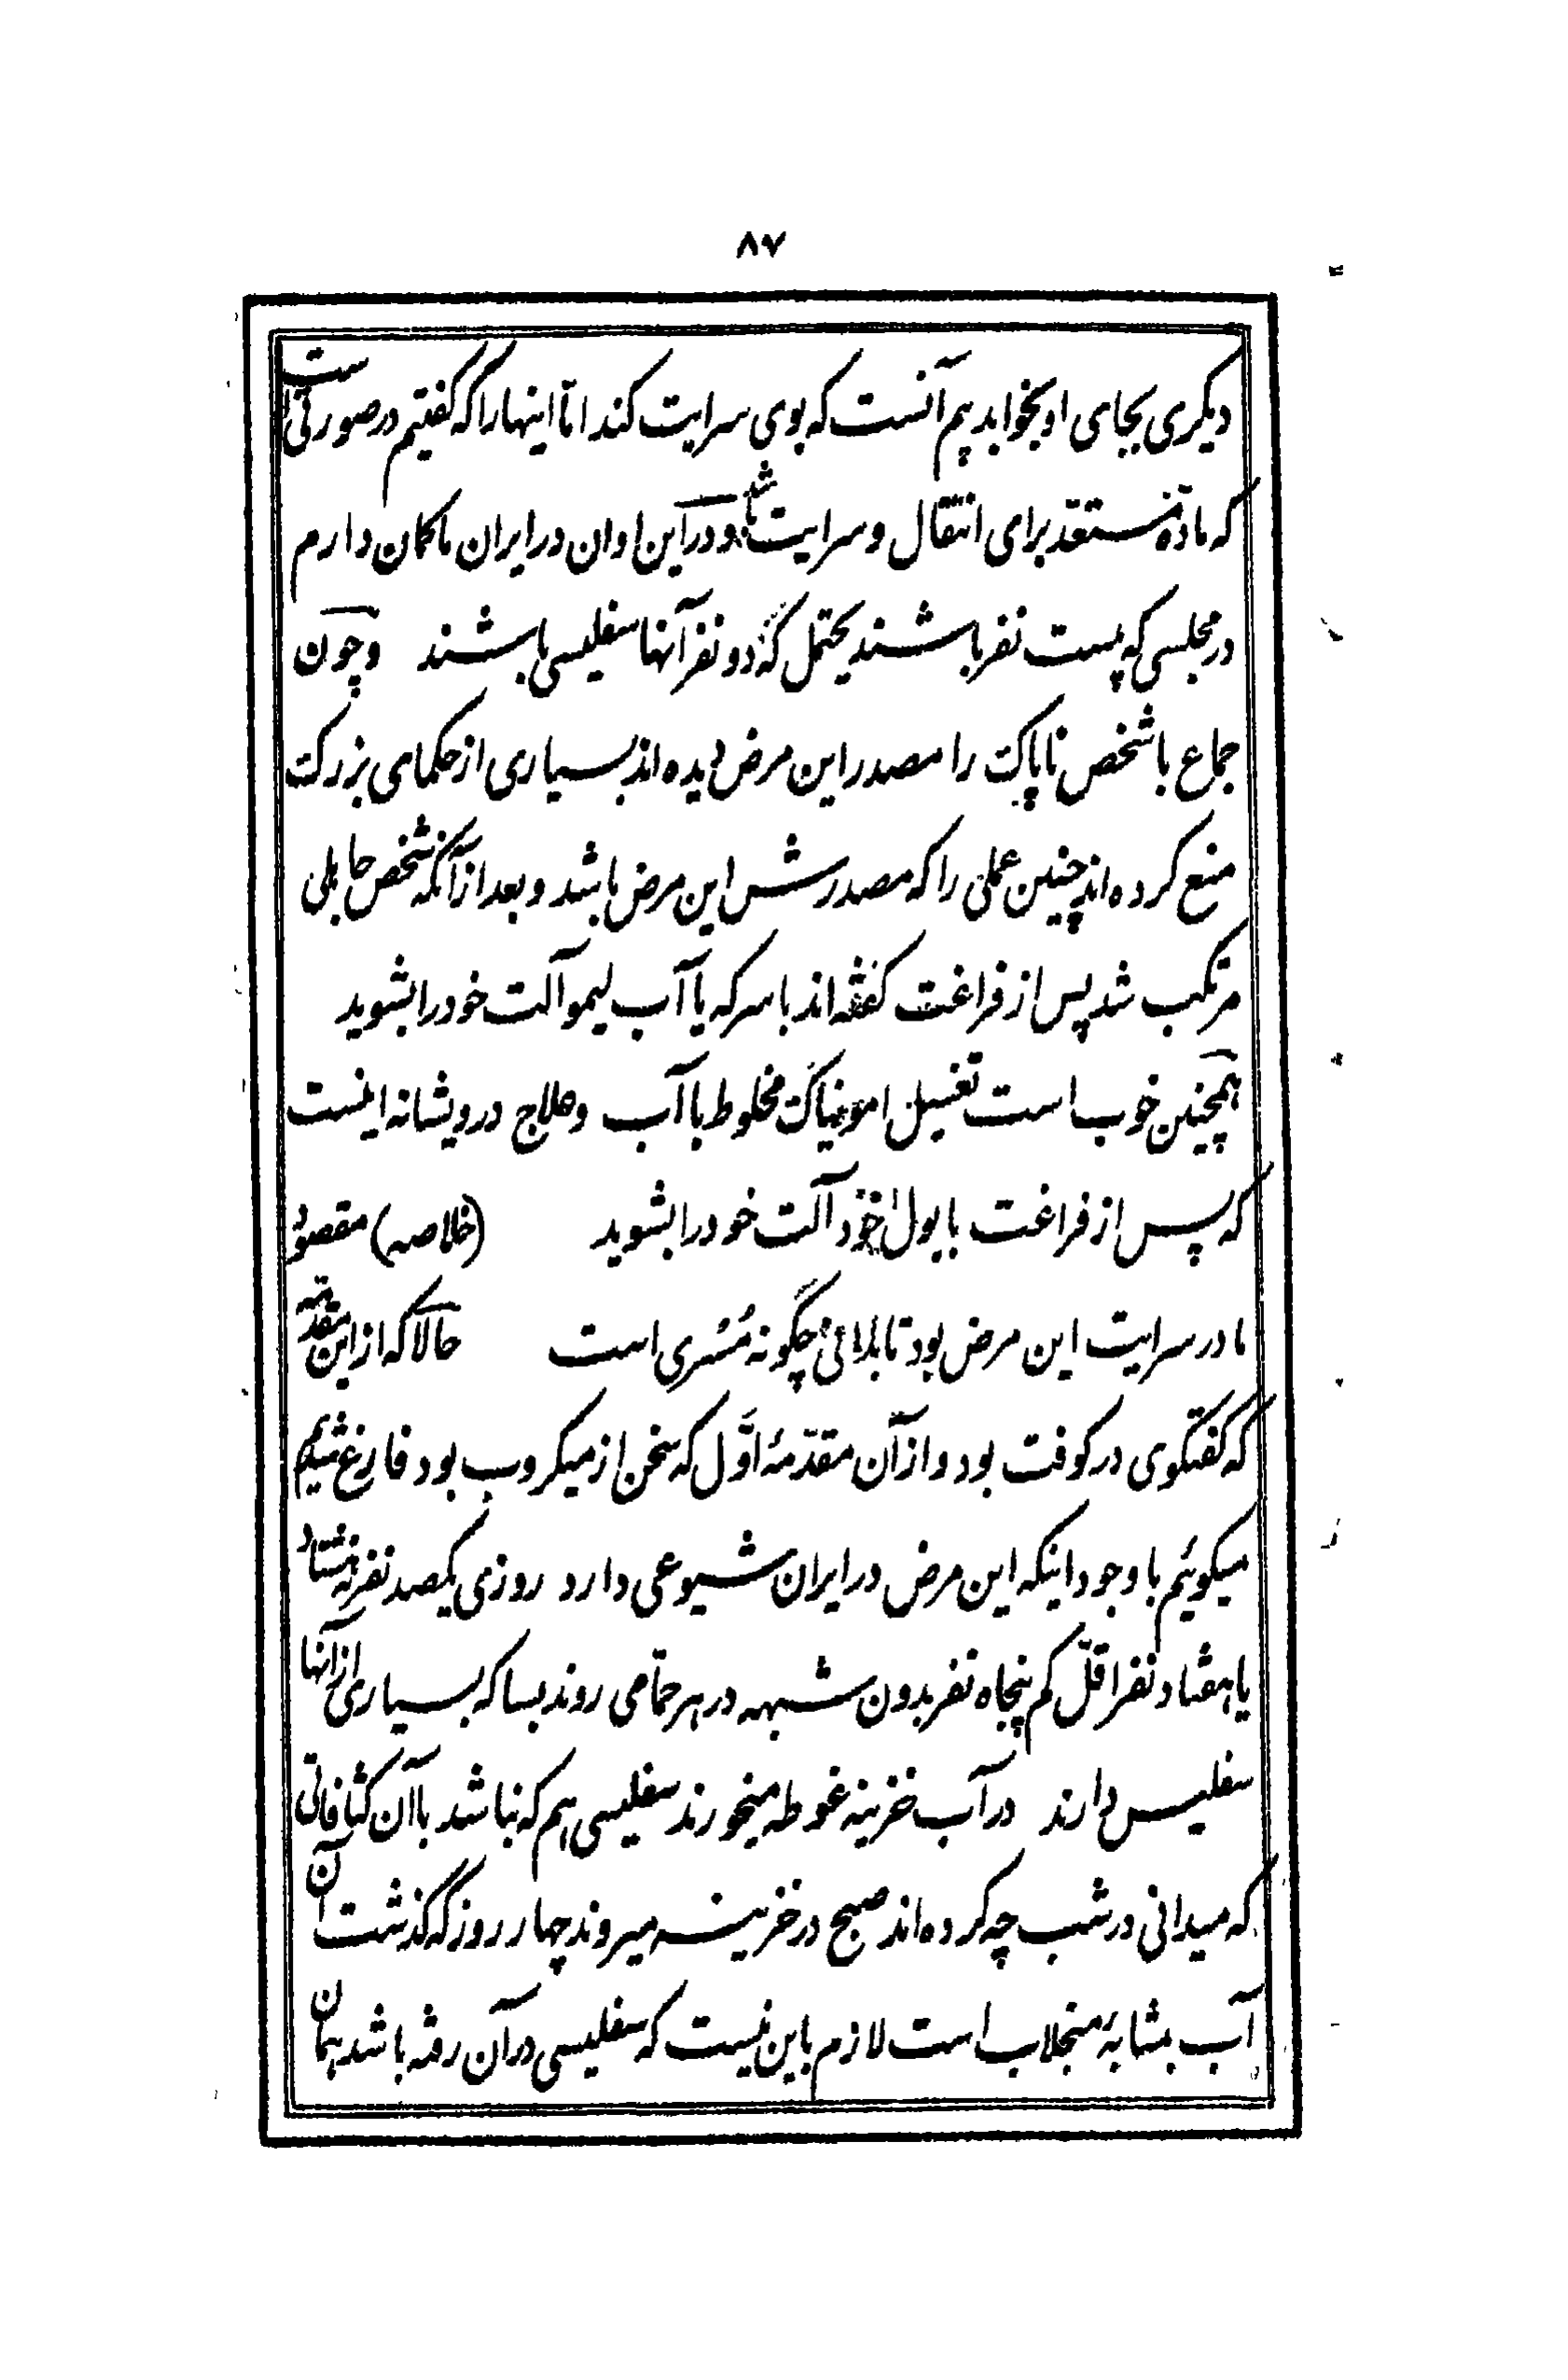 ۸۷
دیکری بجای او بخوابد بیم آنست که بوی سرایت کند امّا اینها را که گفتیم در صورتی است
که مادّه مستعّد برای انتقال و سرایت باشد و در این اوان در ایران ما کمان دارم
در مجلسی که بیست نفر باشند یحتمل که دو نفر آنها سفلیسی باشند وچون
جماع با شخص ناپاک را مصدر این مرض دیده اند بسیاری از حکمای بزرک
منع کرده اند چنین عملی را که مصدرش این مرض باشد و بعد از آنکه شخص جاهلی
مرتکب شد پس از فراغت کفته اند با سرکه یا آب لیمو آلت خود را بشوید
همچنین خوب است تغسیل امونیاک مخلوط با آب وعلاج درویشانه اینست
که پس از فراغت با بول خود آلت خود را بشوید (خلاصه) مقصود
ما در سرایت این مرض بود تا بدانی چگونه مُسْری است حالا که از این مقدّمه
که کفتکوی در کوفت بود و از آن مقدّمهٔ اوّل که سخن از میکروب بود فارغ شدیم
میکوئیم با وجود اینکه این مرض در ایران شیوعی دارد روزی یکصد نفر نه هشتاد
یا هفتاد نفر اقلّ کم پنجاه نفر بدون شبهه در هر حمّامی روند بسا که بسیاری از آنها
سفلیس دارند در آب خزینه غوطه میخورند سفلیسی هم که نباشد با آن کثافاتی
که میدانی در شب چه کرده اند صبح در خزینه میروند چهار روز که گذشت آن
آب بمثابهٔ منجلاب است لازم باین نیست که سفلیسی در آن رفته باشد همان